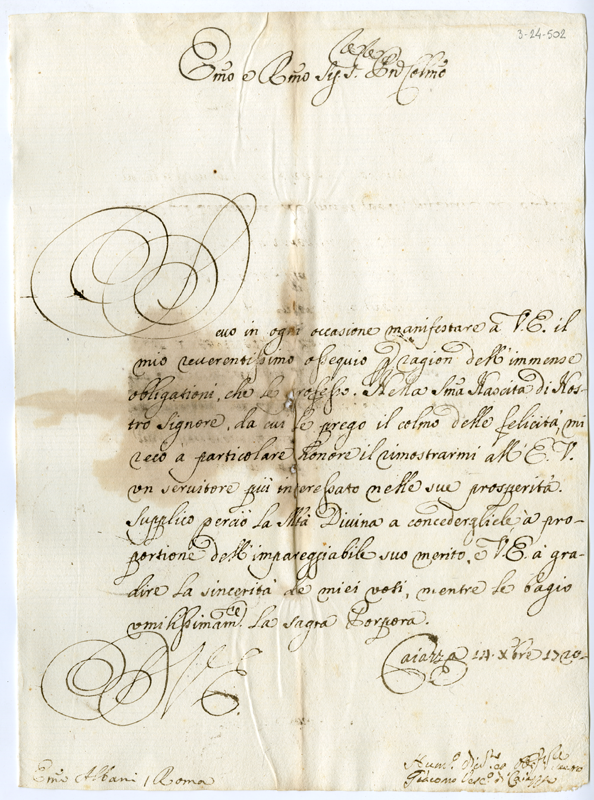 3-24-502
Emo e Rmo Sig.r Pnd Colmo
Devo in ogni occasione manifestare à V.E. il
mio reverentissimo ossequio p ragion dell'immense
obligationi, che le professo. Nella Sma Nascita di Nos-
tro Signore, da cui le prego il colmo delle felicità, mi
reco a particolare honore il rimostrarmi all'E.V.
un servitore più interessato nelle sue prosperità.
Supplico perciò la Mtà Divina a concedergliele à pro-
portione dell'impareggiabile suo merito, e V.E. à gra-
dire la sincerità de miei voti, mentre le bagio
umilissimam.te la sagra Porpora.
Caiazza 14. Xbre 1720
V E
Emo Albani / Roma
Hum.o
Giacomo Vesc.o di Caiazza